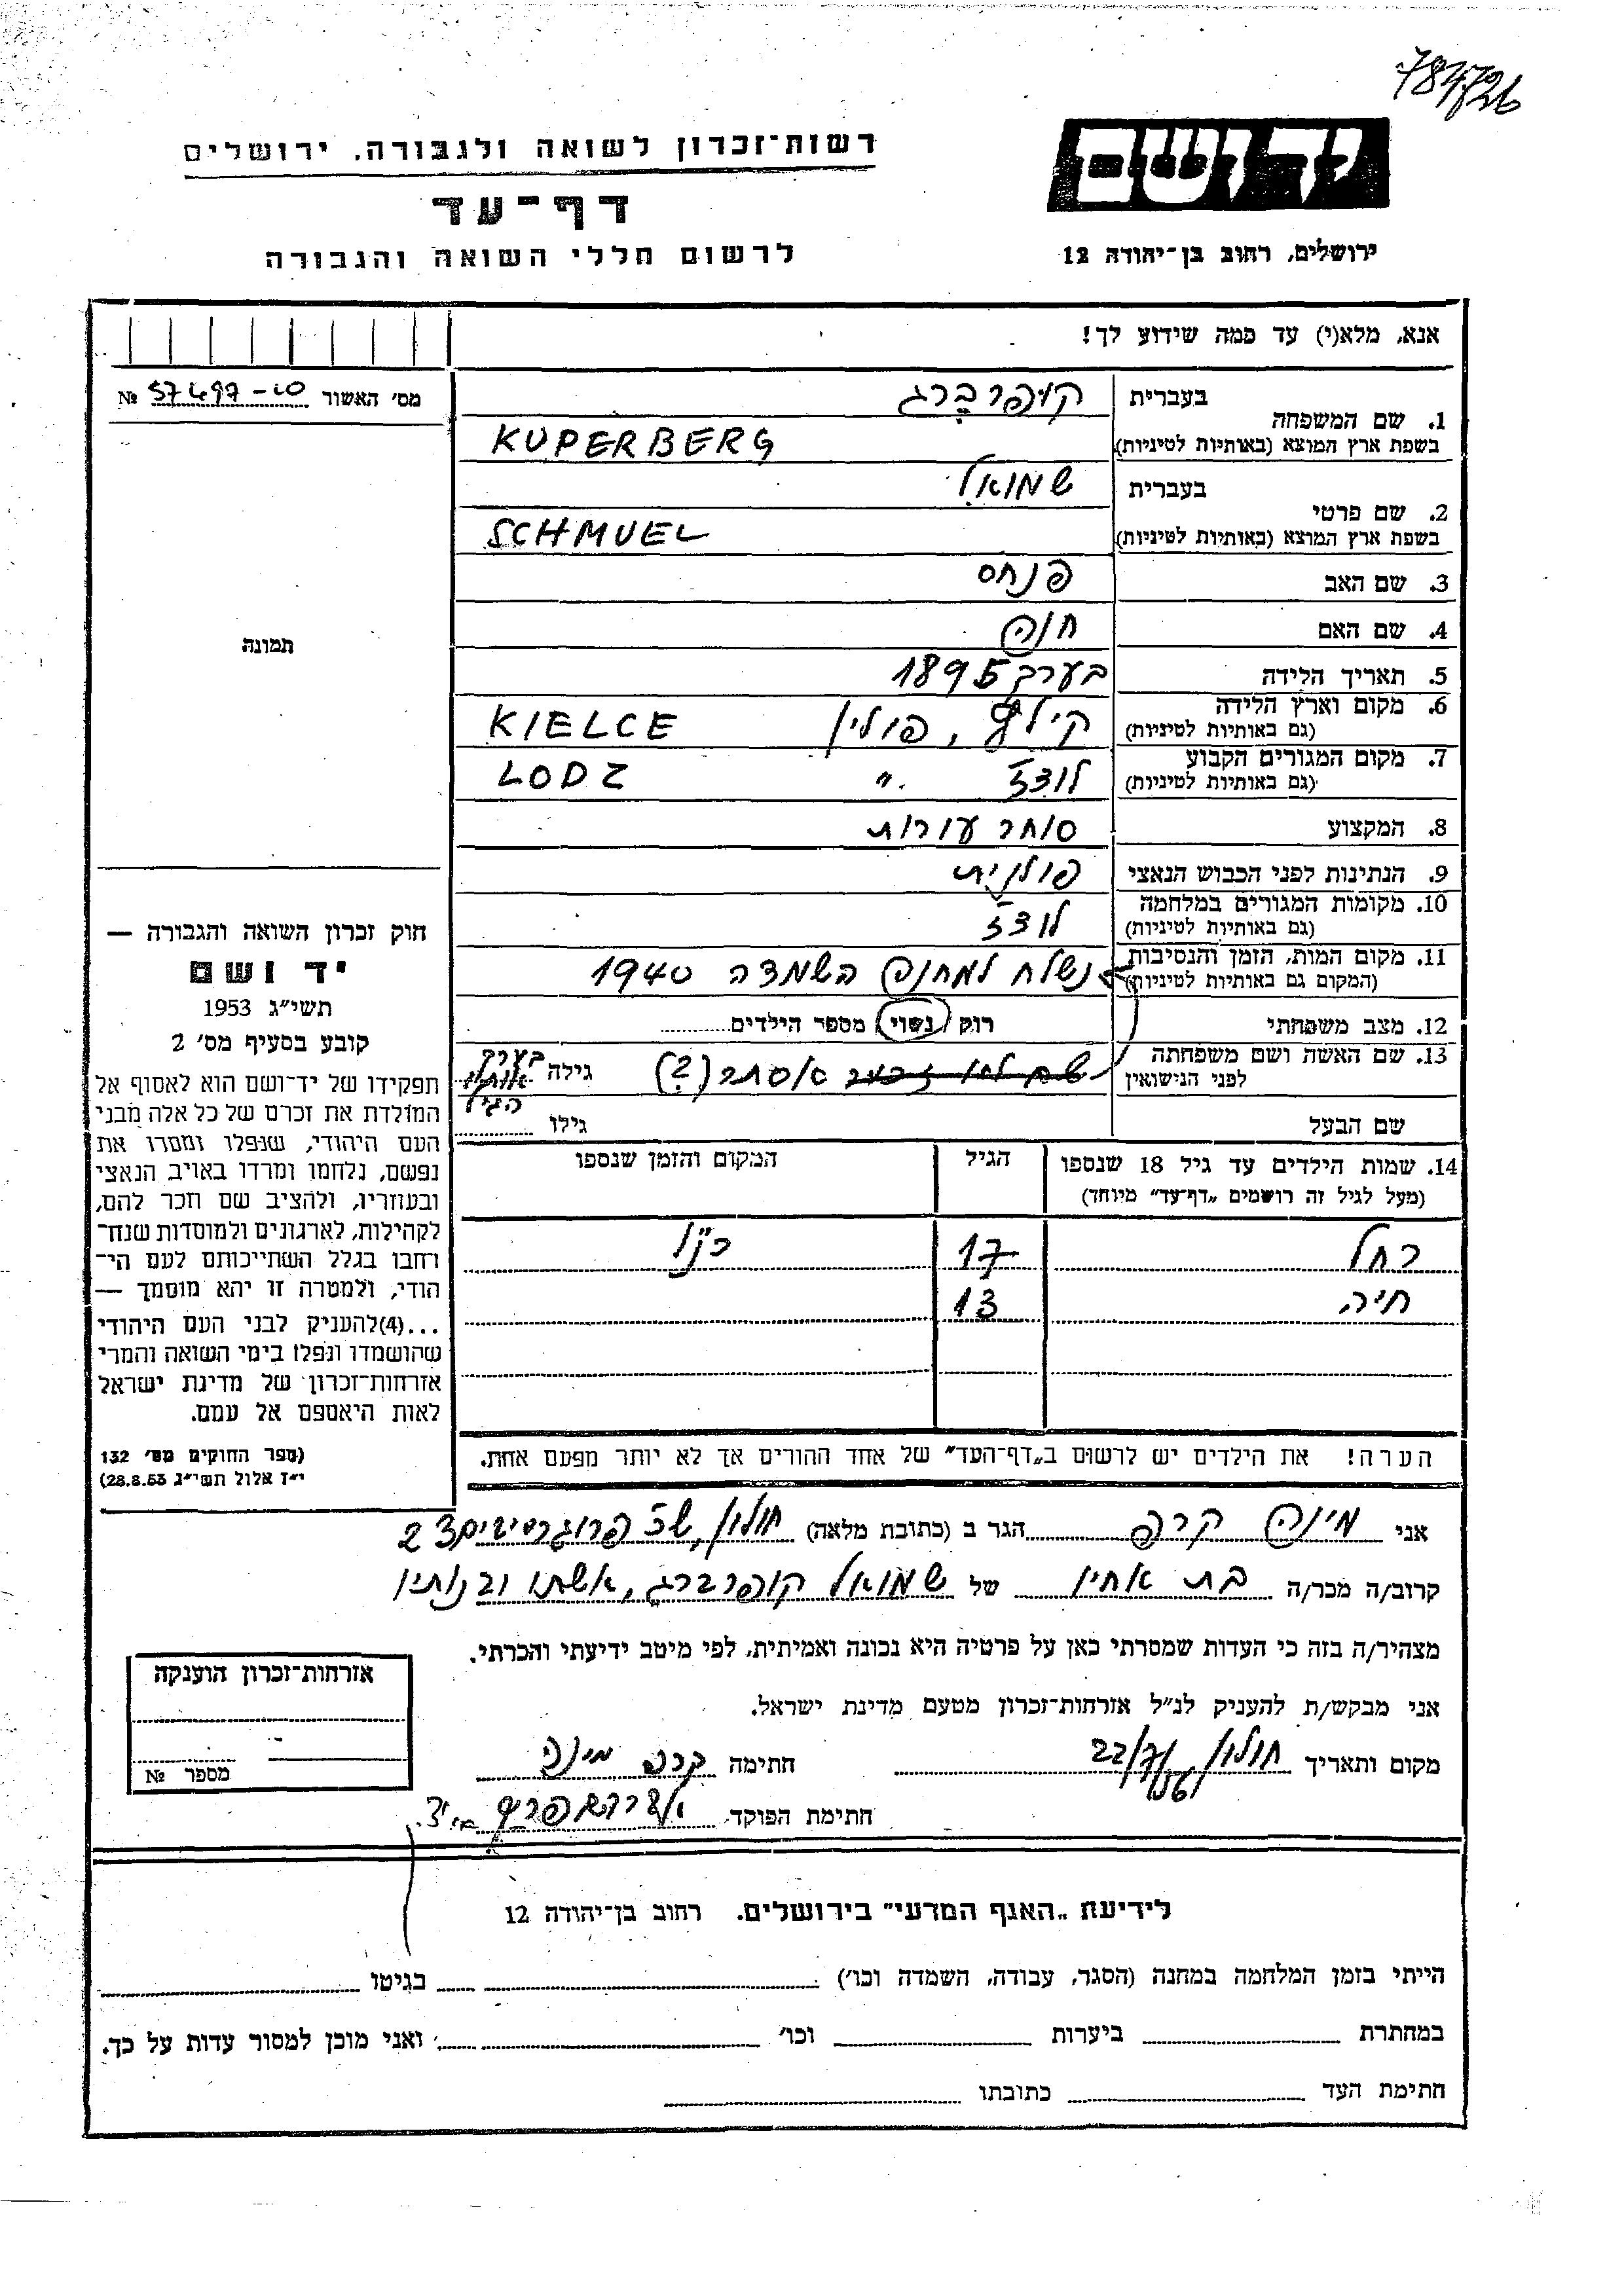 784726
רשות־זכרון לשואה ולגבורה. ירושלים
יד ושם
דף־עד
לרשום חללי השואה והגבורה
ירושלים, רחוב בן־יהודה 12
אנא, מלא(י) עד כמה שידוע לך!
מס' האשור № 57497-10
1. שם המשפחה
בעברית קופרברג
בשפת ארץ המוצא (באותיות לטיניות) KUPERBERG
2. שם פרטי
בעברית שמואל
בשפת ארץ המוצא (באותיות לטיניות) SCHMUEL
3. שם האב פנחס
4. שם האם חנה
תמונה
5. תאריך הלידה בערך 1895
6. מקום וארץ הלידה
(גם באותיות לטיניות) קילץ, פולין KIELCE
7. מקום המגורים הקבוע
(גם באותיות לטיניות) לודז' " LODZ
8. המקצוע סוחר עורות
9. הנתינות לפני הכבוש הנאצי פולנית
10. מקומות המגורים במלחמה
(גם באותיות לטיניות) לודז'
11. מקום המות, הזמן והנסיבות
(המקום גם באותיות לטיניות) נשלח למחנה השמדה 1940
12. מצב משפחתי רוק / נשוי / מספר הילדים
13. שם האשה ושם משפחתה
לפני הנישואין אסתר (?) גילה בערך אותו הגיל
שם הבעל גילו
14. שמות הילדים עד גיל 18 שנספו הגיל המקום והזמן שנספו
(מעל לגיל זה רושמים „דף־עד" מיוחד)
רחל 17 כנ"ל
חיה 13
הערה! את הילדים יש לרשום ב„דף־העד" של אחד ההורים אך לא יותר מפעם אחת.
חוק זכרון השואה והגבורה —
יד ושם
תשי"ג 1953
קובע בסעיף מס' 2
תפקידו של יד־ושם הוא לאסוף אל
המולדת את זכרם של כל אלה מבני
העם היהודי, שנפלו ומסרו את
נפשם, נלחמו ומרדו באויב הנאצי
ובעוזריו, ולהציב שם וזכר להם,
לקהילות, לארגונים ולמוסדות שנח־
רחבו בגלל השתייכותם לעם הי־
הודי, ולמטרה זו יהא מוסמך —
...(4)להעניק לבני העם היהודי
שהושמדו ונפלו בימי השואה והמרי
אזרחות־זכרון של מדינת ישראל
לאות היאספם אל עמם.
(ספר החוקים מס' 132
י״ז אלול תשי״ג 28.8.53)
אני מינה קרפ הגר ב (כתובת מלאה) חולון, שכ' פרוגרסיבים 23
קרוב/ה מכר/ה בת אחיו של שמואל קופרברג, אשתו ובנותיו
מצהיר/ה בזה כי העדות שמסרתי כאן על פרטיה היא נכונה ואמיתית, לפי מיטב ידיעתי והכרתי.
אני מבקש/ת להעניק לנ״ל אזרחות־זכרון מטעם מדינת ישראל.
מקום ותאריך חולון 22/7/1956 חתימה קרפ מינה
חתימת הפוקד
אזרחות־זכרון הוענקה
מספר №
לידיעת „האגף המדעי" בירושלים. רחוב בן־יהודה 12
הייתי בזמן המלחמה במחנה (הסגר, עבודה, השמדה וכו') בגיטו
במחתרת ביערות וכו' ואני מוכן למסור עדות על כך.
חתימת העד כתובתו